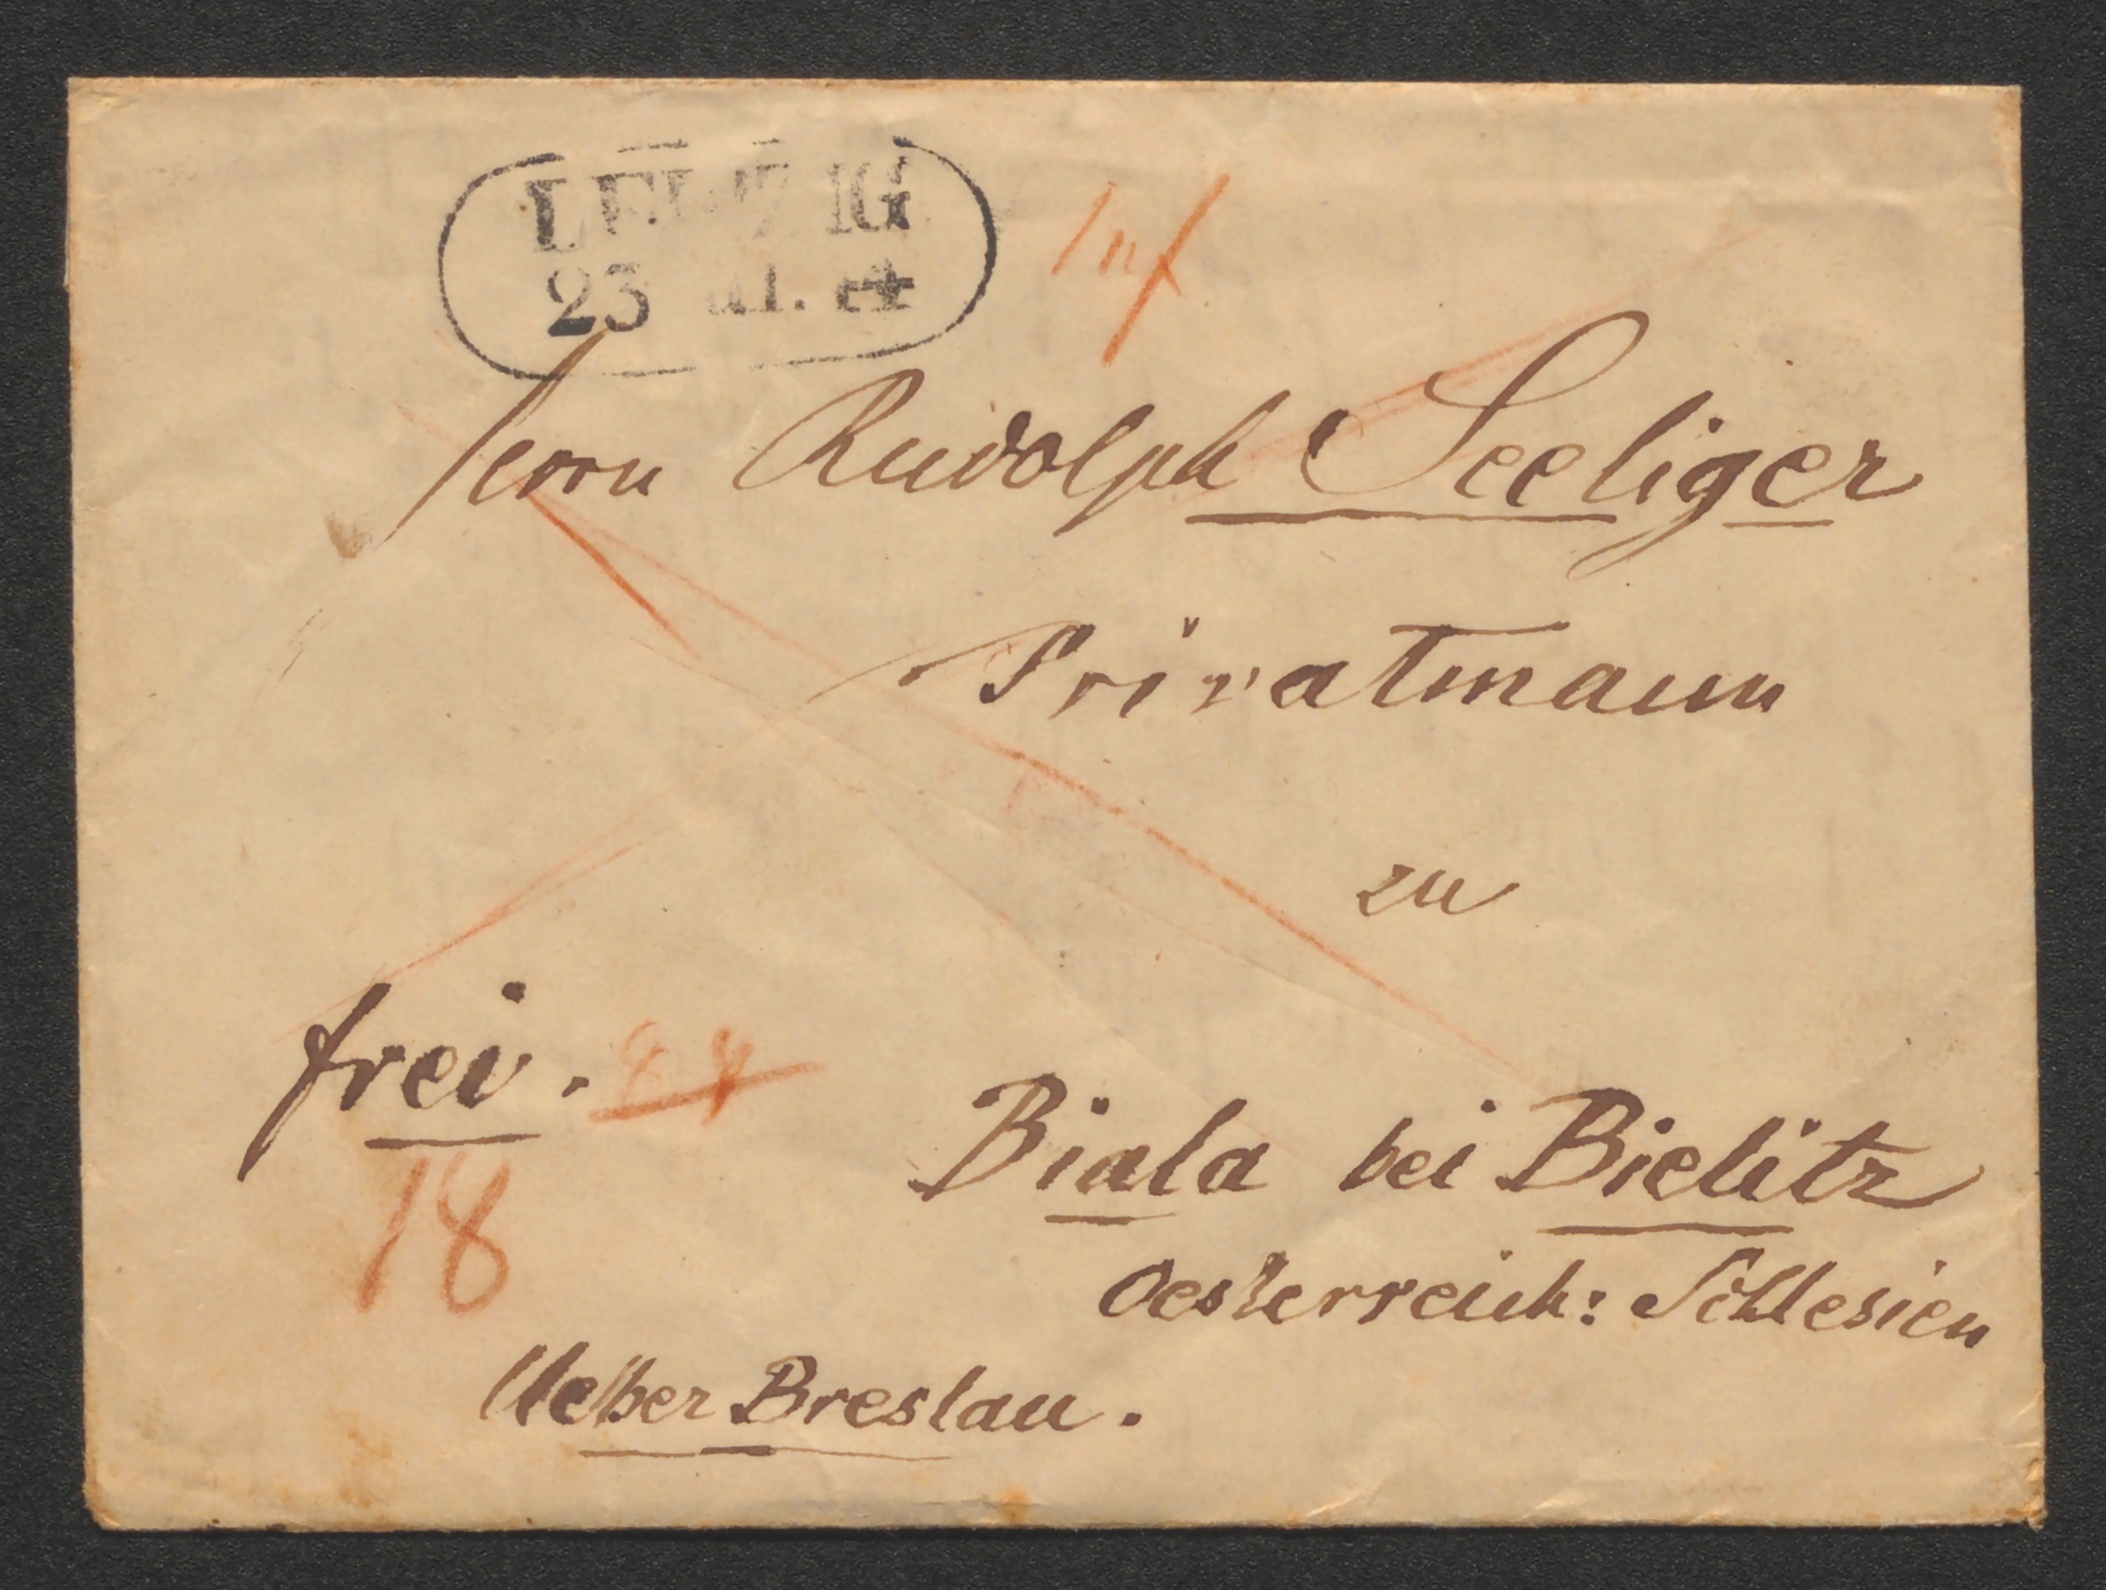 LEIPZIG
23
Herrn Rudolph Seeliger
Privatmann
zu
frei.
18
Biala bei Bielitz
Oesterreich: Schlesien
Ueber Breslau.